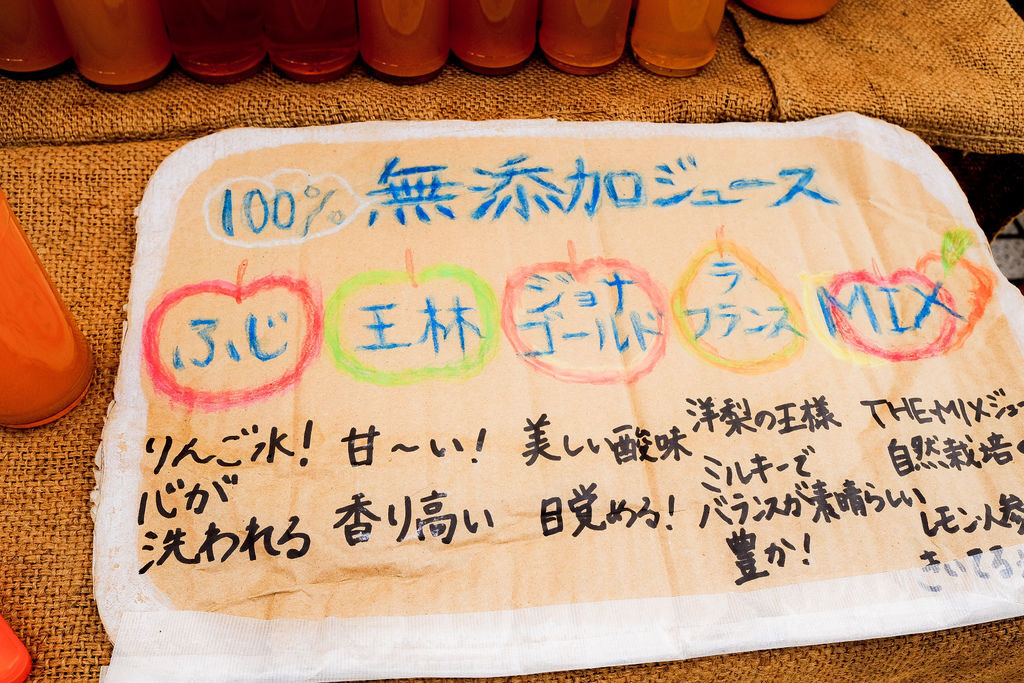 100% 無添加ジュース
ふじ
りんご水!
心が
洗われる
王林
甘〜い!
香り高い
ジョナ
ゴールド
美しい酸味
目覚める!
ラ
フランス
洋梨の王様
ミルキーで
バランスが素晴らしい
豊か!
MIX
THE・MIXジュー
自然栽培の
レモン、人参
きいてる